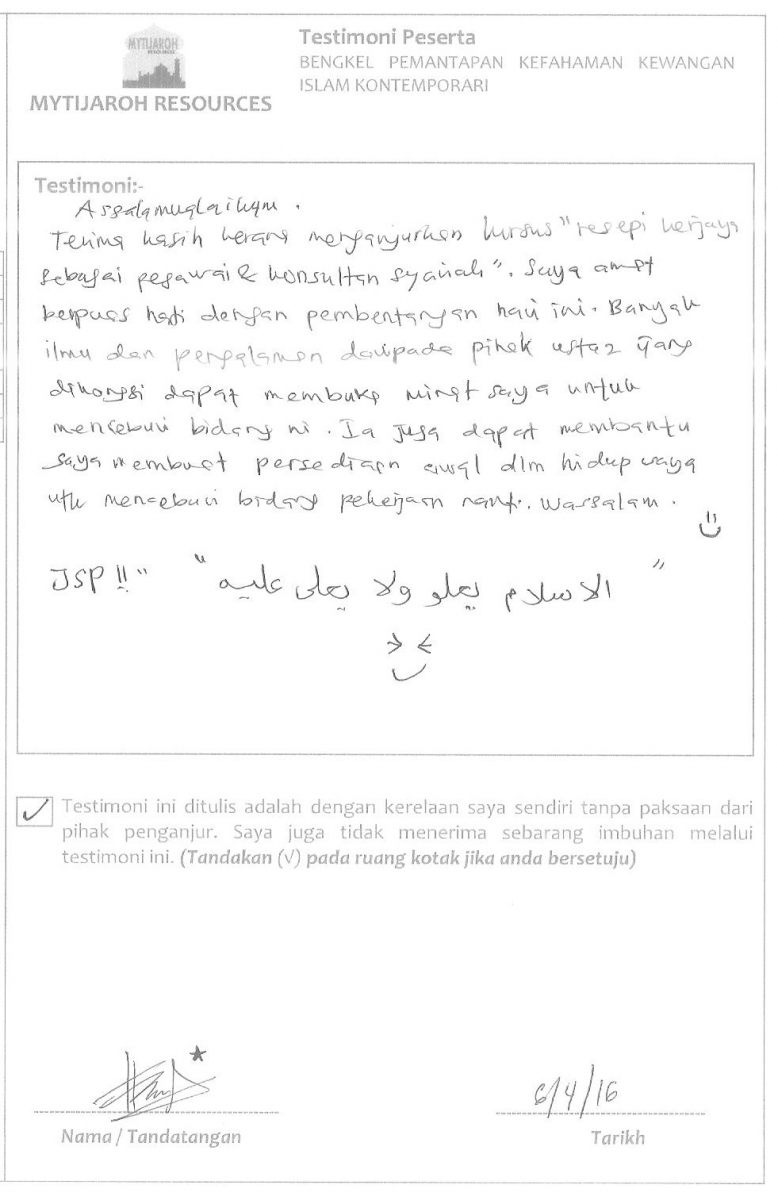 MYTIJAROH
RESOURCES
MYTIJAROH RESOURCES
Testimoni Peserta
BENGKEL PEMANTAPAN KEFAHAMAN KEWANGAN
ISLAM KONTEMPORARI
Testimoni:-
Assalamualaikum.
Terima kasih kerana menganjurkan kursus "resepi kerjaya
sebagai pegawai & konsultan syariah". Saya amat
berpuas hati dengan pembentangan hari ini. Banyak
ilmu dan pengalaman daripada pihak ustaz yang
dikongsi dapat membuka minat saya untuk
menceburi bidang ni. Ia juga dapat membantu
saya membuat persediaan awal dlm hidup saya
utk menceburi bidang pekerjaan nanti. Wassalam.
JSP!! " " الاسلام يعلو ولا يعلى عليه "
✓ Testimoni ini ditulis adalah dengan kerelaan saya sendiri tanpa paksaan dari
pihak penganjur. Saya juga tidak menerima sebarang imbuhan melalui
testimoni ini. (Tandakan (√) pada ruang kotak jika anda bersetuju)
6/4/16
Nama / Tandatangan
Tarikh